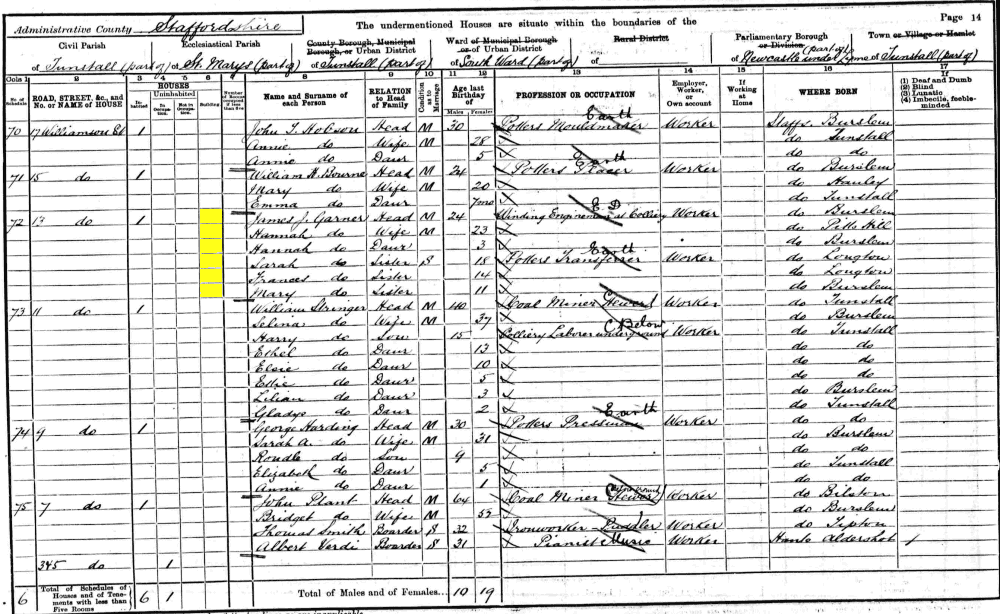 Page 14
Administrative County Staffordshire
The undermentioned Houses are situate within the boundaries of the
Civil Parish
of Tunstall (part of)
Ecclesiastical Parish
of St. Marys (part of)
County Borough, Municipal Borough, or Urban District
of Tunstall (part of)
Ward of Municipal Borough or of Urban District
of South Ward (part of)
Rural District
Parliamentary Borough or Division (part of)
of Newcastle under Lyme
Town or Village or Hamlet
of Tunstall (part of)
Cols 1 2 3 4 5 6 7 8 9 10 11 12 13 14 15 16 17
No. of Schedule
ROAD, STREET, &c., and No. or NAME of HOUSE
HOUSES
Inhabited
Uninhabited
In Occupation.
Not in Occupation.
Building
Number of Rooms occupied if less than five
Name and Surname of each Person
RELATION to Head of Family
Condition as to Marriage
Age last Birthday of
Males Females
PROFESSION OR OCCUPATION
Employer, Worker, or Own account
If Working at Home
WHERE BORN
(1) Deaf and Dumb
(2) Blind
(3) Lunatic
(4) Imbecile, feeble-minded
70 17 Williamson St 1 John T. Hobson Head M 30 Potters Mouldmaker Earth Worker Staffs. Burslem
Annie do Wife M 28 do Tunstall
Annie do Daur 5 do do
71 15 do 1 William H. Bourne Head M 24 Potters Placer Earth Worker do Burslem
Mary do Wife M 20 do Hanley
Emma do Daur 7mo do Tunstall
72 13 do 1 James J. Garner Head M 24 Winding Engineman at Colliery Worker do Burslem
Hannah do Wife M 23 do Pitts Hill
Hannah do Daur 3 do Burslem
Sarah do Sister S 18 Potters Transferrer Earth Worker do Longton
Frances do Sister 14 do Longton
Mary do Sister 11 do Burslem
73 11 do 1 William Stringer Head M 40 Coal Miner Hewer Worker do Tunstall
Selina do Wife M 37 do Burslem
Harry do Son 15 Colliery Laborer underground Below Worker do Tunstall
Ethel do Daur 13 do do
Elsie do Daur 10 do do
Effie do Daur 5 do do
Lilian do Daur 3 do Burslem
Gladys do Daur 2 do Tunstall
74 9 do 1 George Harding Head M 30 Potters Pressman Earth Worker do do
Sarah A. do Wife M 31 do Burslem
do Son 9 do do
Elizabeth do Daur 5 do Tunstall
Annie do Daur 1 do do
75 7 do 1 John Plant Head M 64 Coal Miner Hewer Worker do Bilston
Bridget do Wife M do Burslem
Thomas Smith Boarder S 32 Ironworker Puddler Worker do Tipton
Albert Verdi Boarder S 31 Pianist Music Worker Hants Aldershot
345 do 1
6 Total of Schedules of Houses and of Tenements with less than Five Rooms 6 1 Total of Males and of Females... 10 19